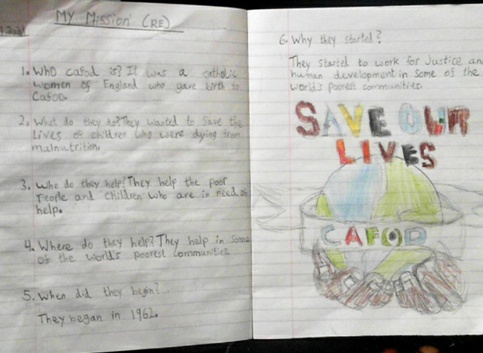 My Mission (RE)
1. Who cafod is? It was a catholic
women of England who gave birth to
Cafod.
2. What do they do? They wanted to save the
lives of children who were dying from
malnutrition.
3. Who do they help? They help the poor
People and children who are in need of
help.
4. Where do they help? They help in some
of the world's poorest communities
5. When did they begin?
They began in 1962.
6. Why they started?
They started to work for Justice and
human development in some of the
world's poorest communities.
SAVE OUR
LIVES
CAFOD